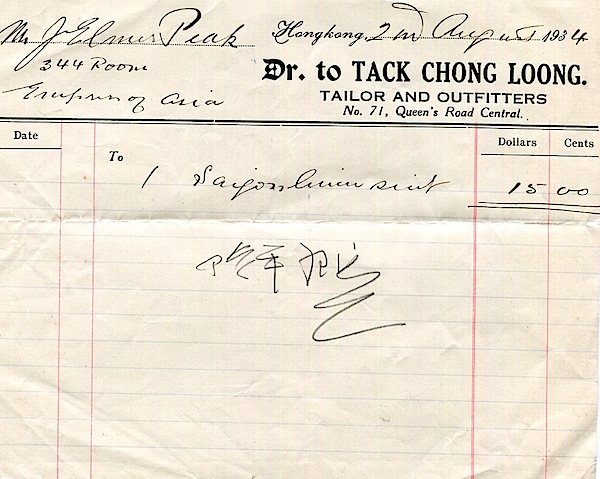 Mr J Elmer Peak
344 Room
Empress of Asia
Hongkong, 2nd August 1934
Dr. to TACK CHONG LOONG.
TAILOR AND OUTFITTERS
No. 71, Queen's Road Central.
Date Dollars Cents
To
1 Saigon linen suit 15 00